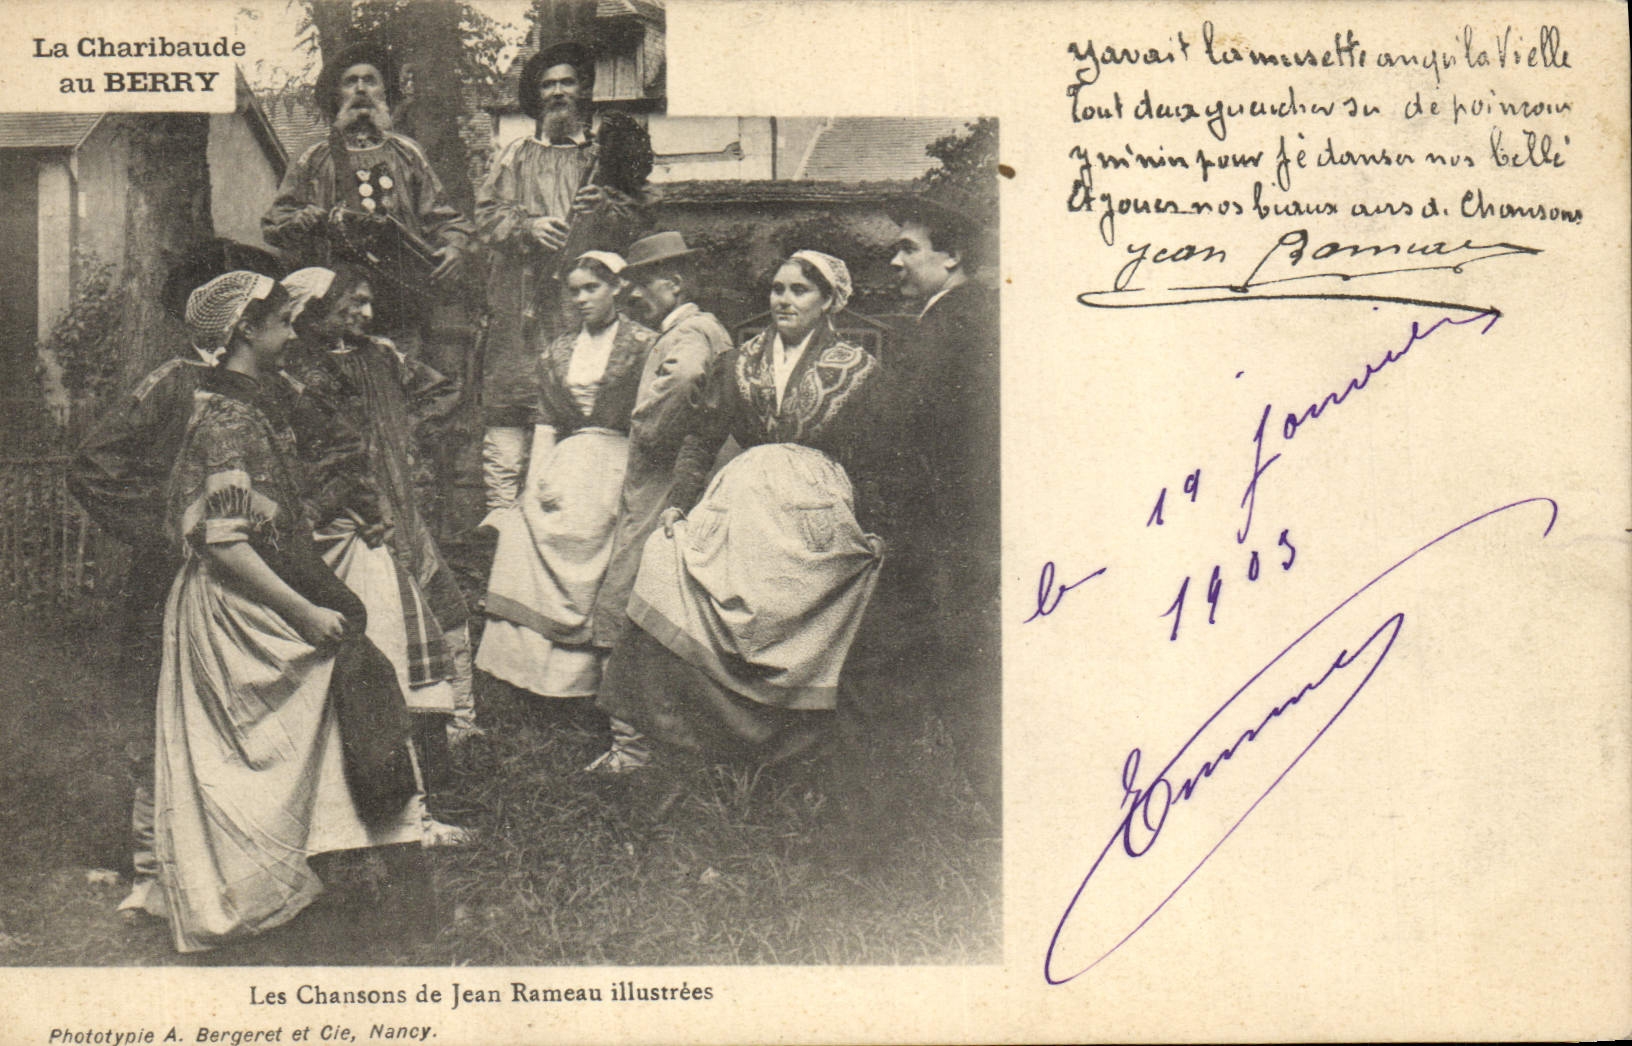 La Charibaude
au BERRY
Y avait la musette anqu'la Vielle
Tout deux
Y m'nin pour fé danser nos bellé
Et jouer nos biaux airs d. Chansons
Jean Rameau
le 19 Janvier
1903
Les Chansons de Jean Rameau illustrées
Phototypie A. Bergeret et Cie, Nancy.